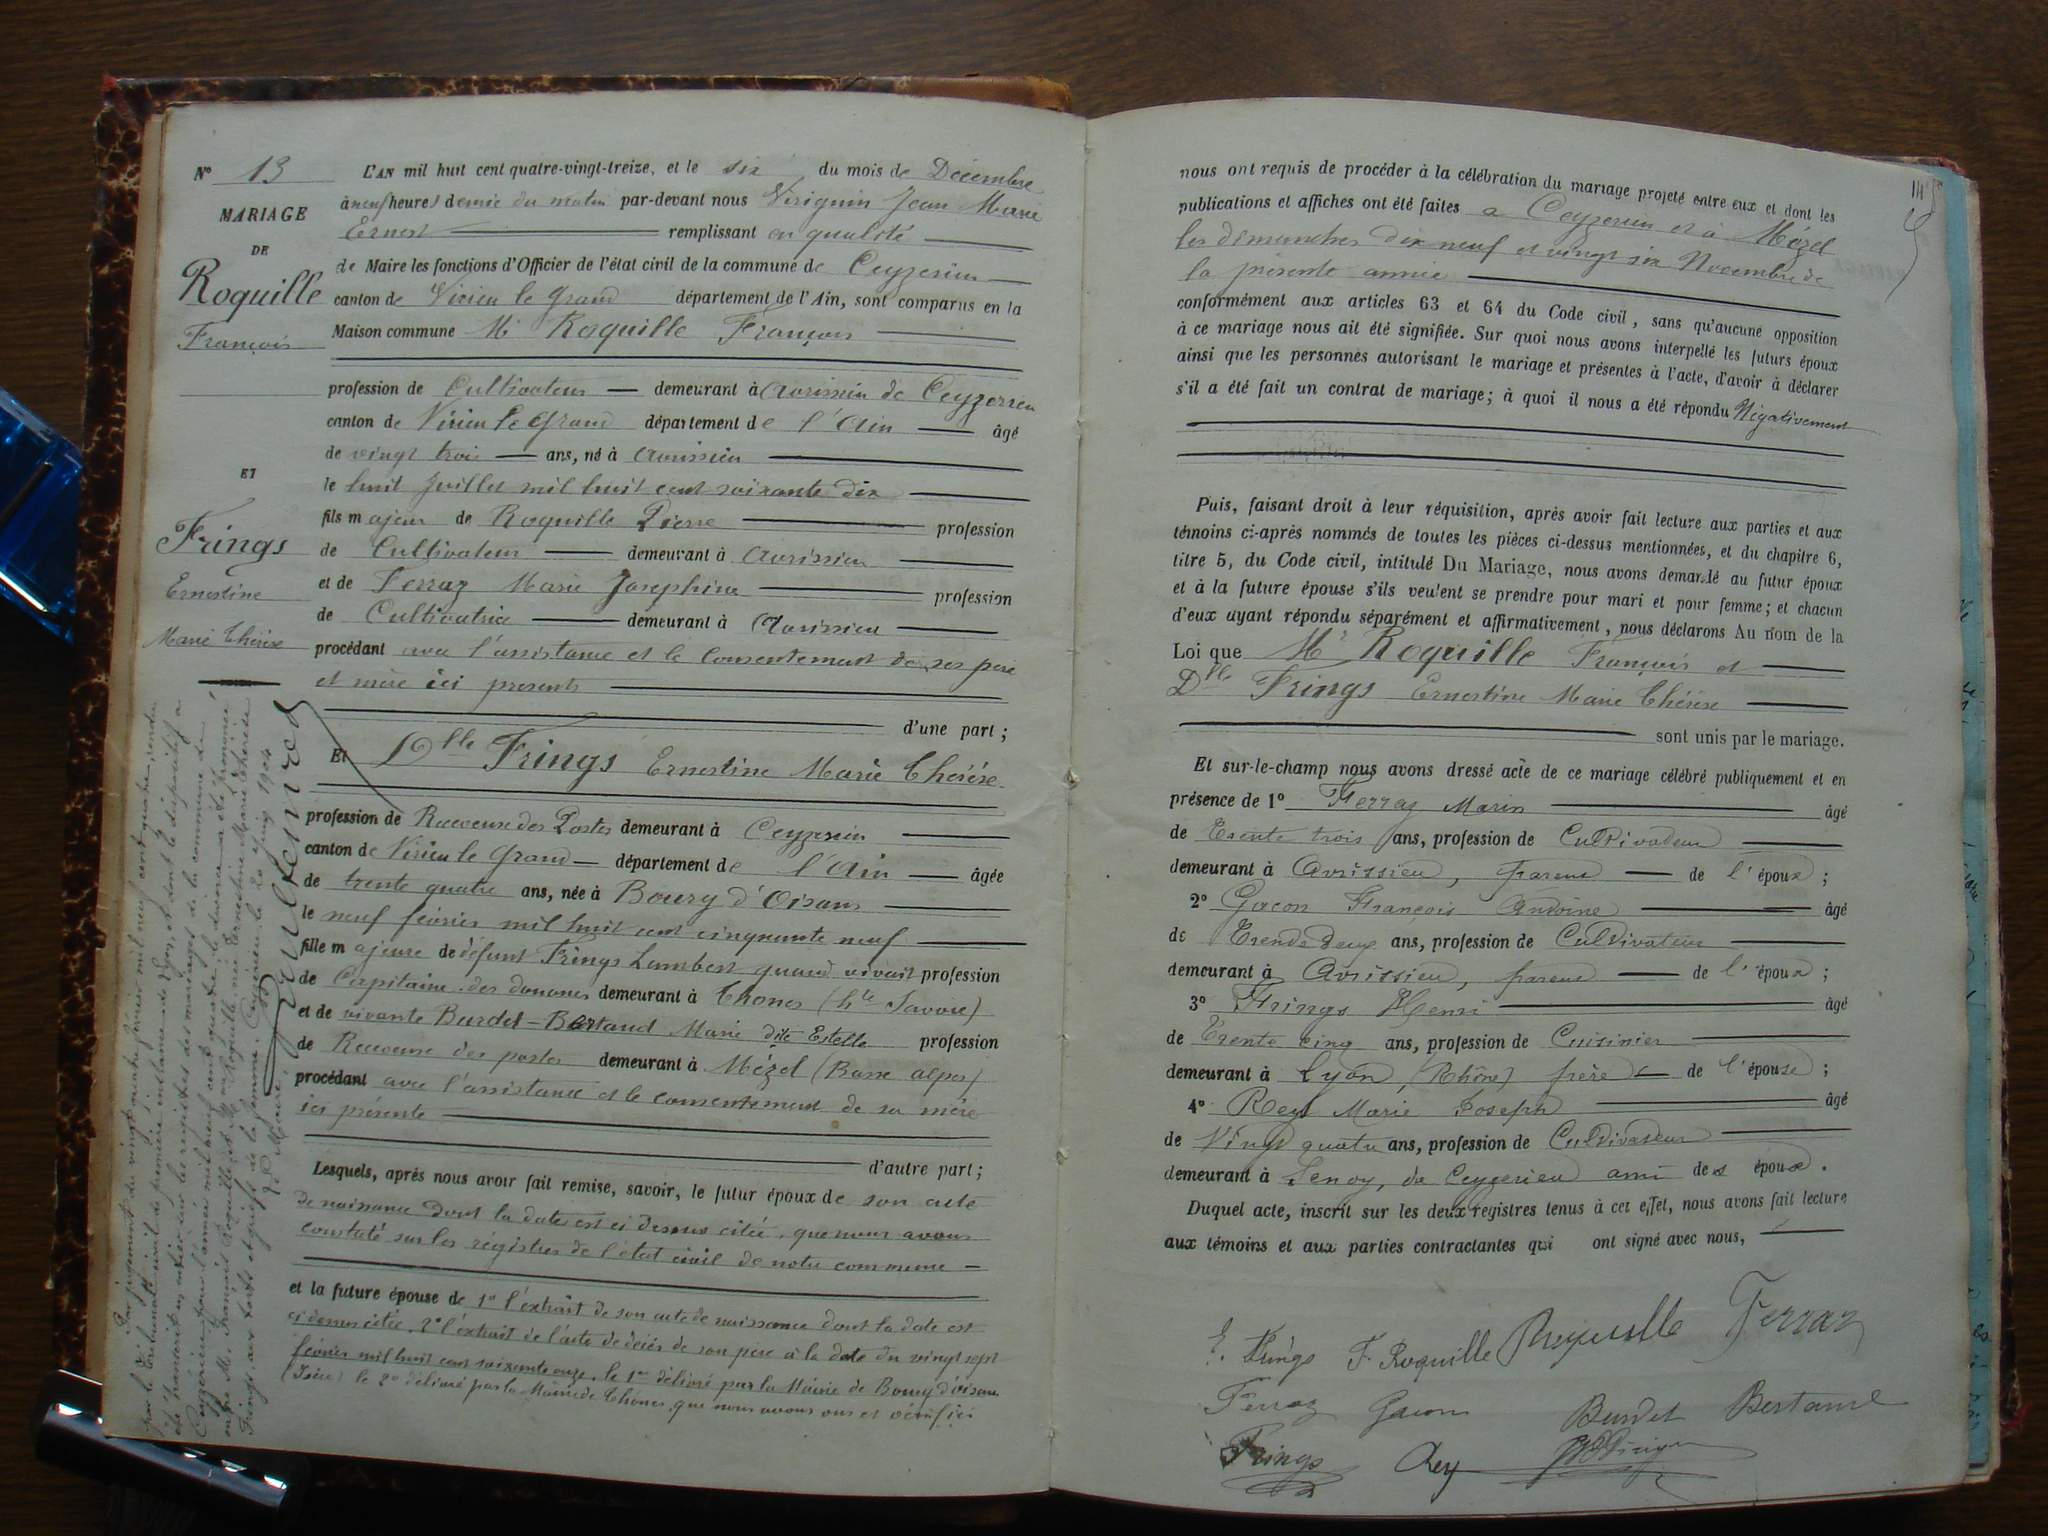 N° 13
MARIAGE
DE
Roquille
François
ET
Frings
Ernestine
Marie Thérèse
L'AN mil huit cent quatre-vingt-treize, et le six du mois de Décembre
à neuf heures demie du matin par-devant nous Viriguin Jean Marie
Ernest remplissant en qualité
de Maire les fonctions d'Officier de l'état civil de la commune de Ceyzerieu
canton de Virieu le Grand département de l'Ain, sont comparus en la
Maison commune Mr Roquille François
profession de Cultivateur demeurant à Avrissieu de Ceyzerieu
canton de Virieu le Grand département de l'Ain âgé
de vingt trois ans, né à Avrissieu
le huit Juillet mil huit cent soixante dix
fils majeur de Roquille Pierre profession
de Cultivateur demeurant à Avrissieu
et de Ferraz Marie Josephine profession
de Cultivatrice demeurant à Avrissieu
procédant avec l'assistance et le consentement de ses père
et mère ici présents
d'une part ;
Et Dlle Frings Ernestine Marie Thérèse
profession de Receveuse des Postes demeurant à Ceyzerieu
canton de Virieu le Grand département de l'Ain âgée
de trente quatre ans, née à Bourg d'Oisans
le neuf février mil huit cent cinquante neuf
fille majeure de défunt Frings Lambert quand vivait profession
de Capitaine des douanes demeurant à Thones (hte Savoie)
et de vivante Burdet-Bertaud Marie dite Estelle profession
de Receveuse des postes demeurant à Mézel (Basse alpes)
procédant avec l'assistance et le consentement de sa mère
ici présente
d'autre part ;
Lesquels, après nous avoir fait remise, savoir, le futur époux de son acte
de naissance dont la date est ci dessus citée, que nous avons
constaté sur les régistres de l'état civil de notre commune
et la future épouse de 1° l'extrait de son acte de naissance dont la date est
ci dessus citée, 2° l'extrait de l'acte de décès de son père à la date du vingt sept
février mil huit cent soixante onze, le 1er délivré par la Mairie de Bourg d'oisans
(Isère) le 2e délivré par la Mairie de Thônes que nous avons vus et vérifiés
Par jugement du vingt quatre février mil neuf cent quatre, rendu
par le Tribunal civil de première instance de Lyon, et dont le dispositif a
été transcrit en entier sur les registres des mariages de la commune de
Ceyzérieu pour l'année mil neuf cent quatre, le divorce a été prononcé
entre M. François Roquille et Mme Roquille née Ernestine Marie Thérèse
Frings, aux torts et griefs de la femme. Ceyzérieu le 20 Juin 1904
Le Maire,
nous ont requis de procéder à la célébration du mariage projeté entre eux et dont les
publications et affiches ont été faites a Ceyzerieu et à Mézel
les dimanches dix neuf et vingt six Novembre de
la présente année
conformément aux articles 63 et 64 du Code civil, sans qu'aucune opposition
à ce mariage nous ait été signifiée. Sur quoi nous avons interpellé les futurs époux
ainsi que les personnes autorisant le mariage et présentes à l'acte, d'avoir à déclarer
s'il a été fait un contrat de mariage ; à quoi il nous a été répondu Négativement
Puis, faisant droit à leur réquisition, après avoir fait lecture aux parties et aux
témoins ci-après nommés de toutes les pièces ci-dessus mentionnées, et du chapitre 6,
titre 5, du Code civil, intitulé Du Mariage, nous avons demandé au futur époux
et à la future épouse s'ils veulent se prendre pour mari et pour femme ; et chacun
d'eux ayant répondu séparément et affirmativement, nous déclarons Au nom de la
Loi que Mr Roquille François et
Dlle Frings Ernestine Marie Thérèse
sont unis par le mariage.
Et sur-le-champ nous avons dressé acte de ce mariage célébré publiquement et en
présence de 1° Ferraz Marin âgé
de Trente trois ans, profession de Cultivateur
demeurant à Avrissieu, parent de l'époux ;
2° Gacon François Antoine âgé
de Trente deux ans, profession de Cultivateur
demeurant à Avrissieu, parent de l'époux ;
3° Frings Henri âgé
de Trente cinq ans, profession de Cuisinier
demeurant à Lyon, (Rhône) frère de l'épouse ;
4° Rey Marie Joseph âgé
de Vingt quatre ans, profession de Cultivateur
demeurant à Senoy, de Ceyzerieu ami des époux.
Duquel acte, inscrit sur les deux registres tenus à cet effet, nous avons fait lecture
aux témoins et aux parties contractantes qui ont signé avec nous,
E. Frings F. Roquille Roquille Ferraz
Ferraz Gacon Burdet Bertaud
Frings Rey